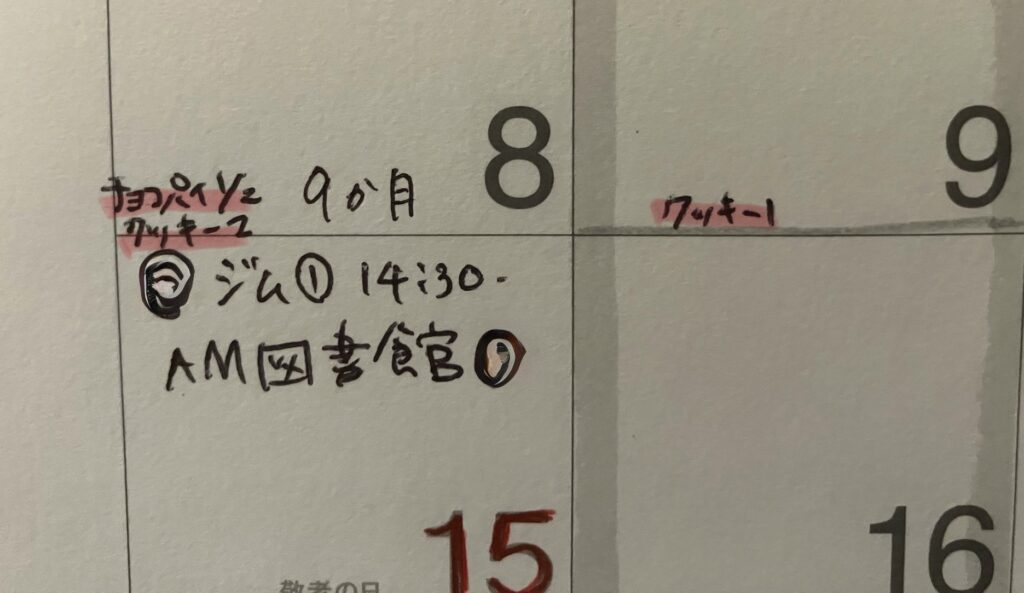 8
9
チョコパイ1/2 9か月
クッキー2
クッキー1
ジム① 14:30-
AM図書館
15
16
敬老の日